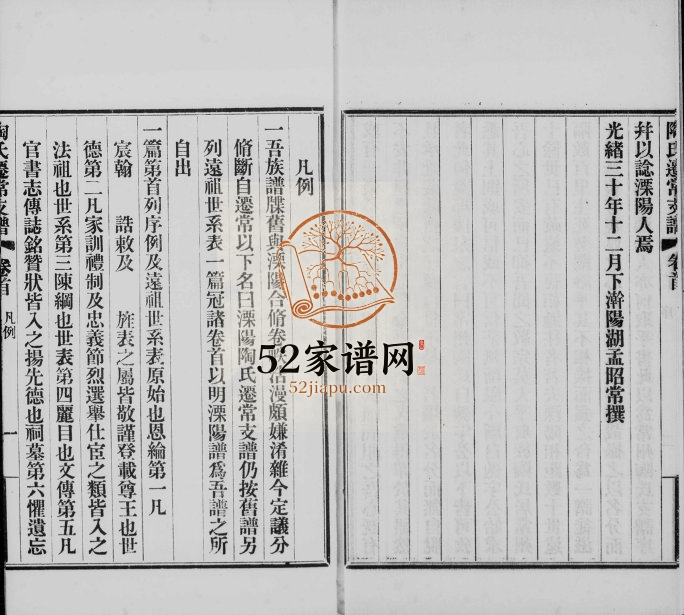 陶氏遷常支譜
卷首
幷以諗溧陽人焉
光緒三十年十二月下澣陽湖孟昭常撰
凡例
一吾族譜牒舊與溧陽合脩卷
漫頗嫌淆雜今定議分
脩斷自遷常以下名曰溧陽陶氏遷常支譜仍按舊譜另
列遠祖世系表一篇冠諸卷首以明溧陽譜爲吾譜之所
自出
一篇第首列序例及遠祖世系表原始也恩綸第一凡
宸翰 誥敕及 旌表之屬皆敬謹登載尊王也世
德第二凡家訓禮制及忠義節烈選舉仕宦之類皆入之
法祖也世系第三陳綱也世表第四麗目也文傳第五凡
官書志傳誌銘贊狀皆入之揚先德也祠墓第六懼遺忘
陶氏遷常支譜
卷首
凡例
一
52家谱网
52jiapu.com